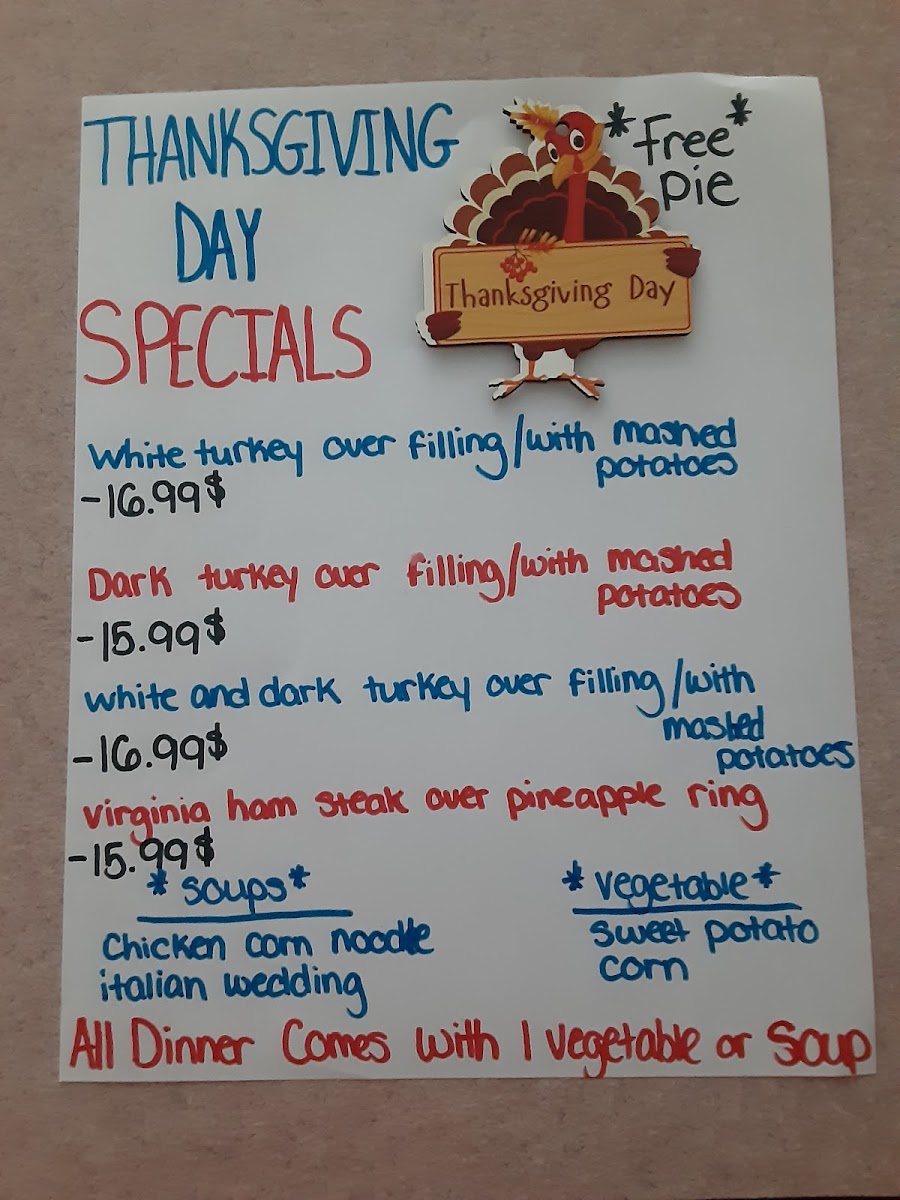 THANKSGIVING
DAY
SPECIALS
*Free*
Pie
Thanksgiving Day
White turkey over filling/with mashed
potatoes
-16.99$
Dark turkey over filling/with mashed
potatoes
-15.99$
white and dark turkey over filling/with
mashed
potatoes
-16.99$
virginia ham steak over pineapple ring
-15.99$
*soups*
chicken corn noodle
italian wedding
*vegetable*
sweet potato
corn
All Dinner Comes with 1 vegetable or Soup